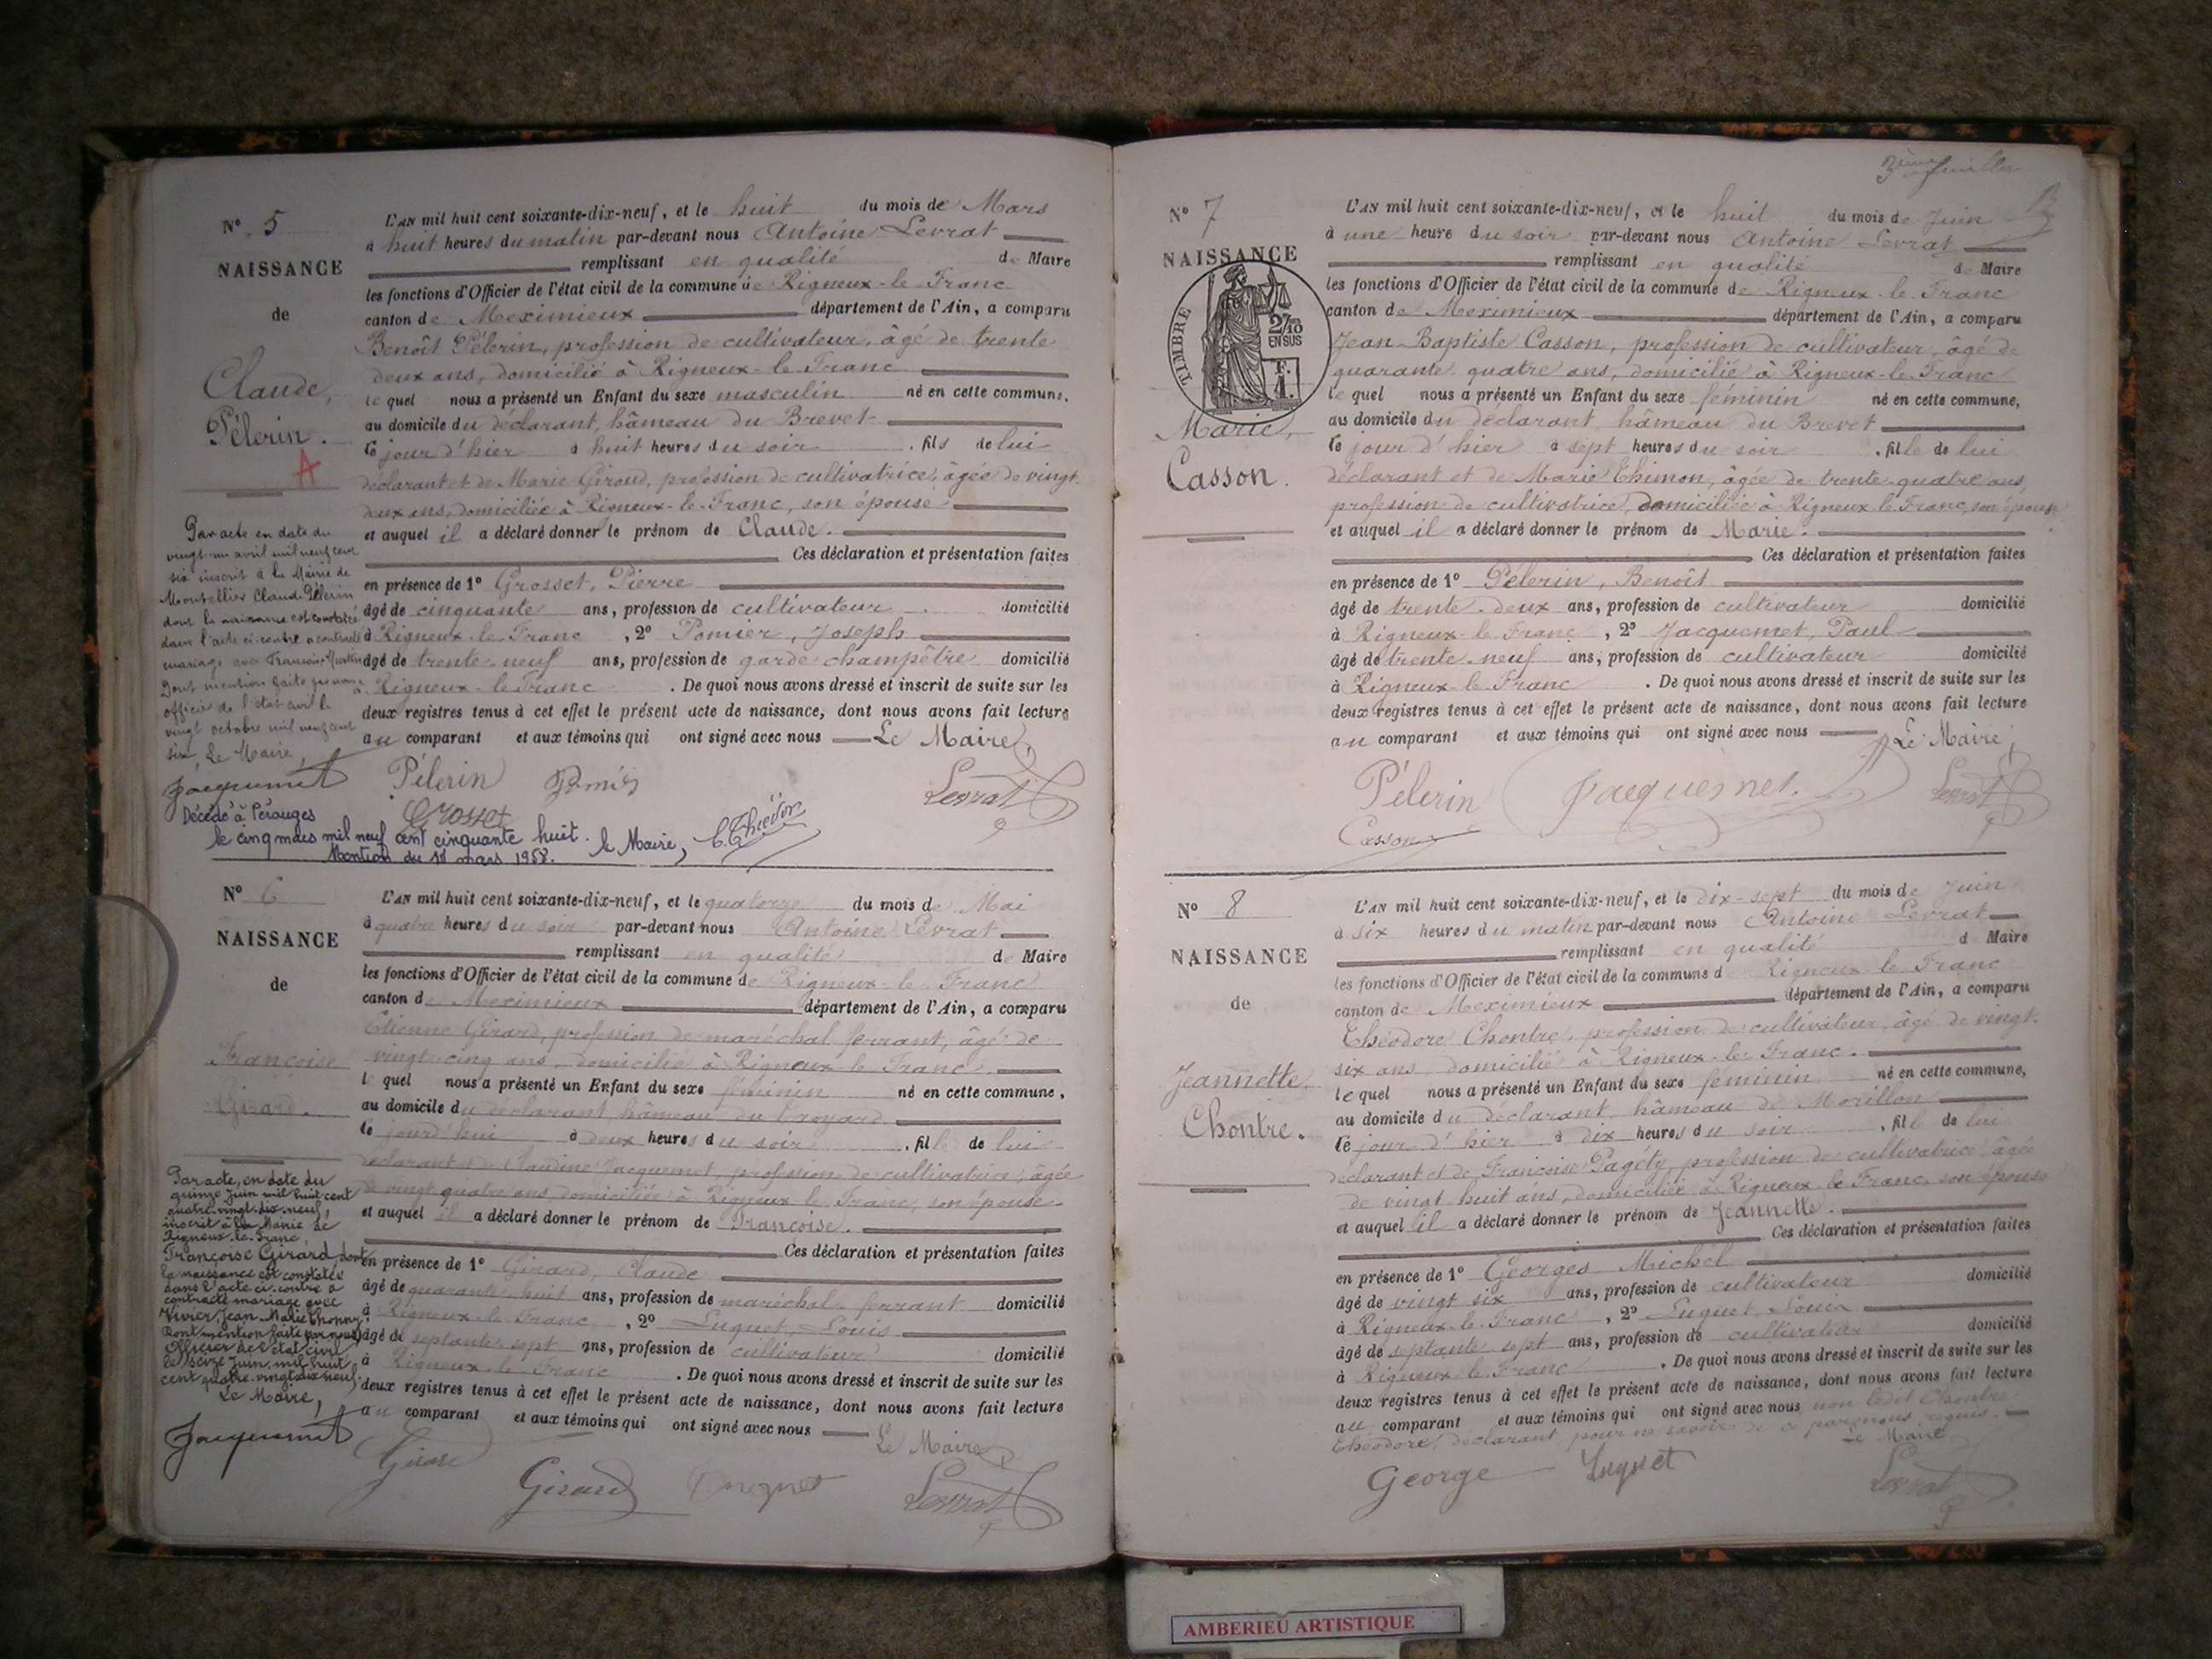 N° 5
NAISSANCE
de
Claude,
Pélerin.
A
L'AN mil huit cent soixante-dix-neuf, et le huit du mois de Mars
à huit heures du matin par-devant nous Antoine Levrat
remplissant en qualité de Maire
les fonctions d'Officier de l'état civil de la commune de Rigneux-le-Franc
canton de Meximieux département de l'Ain, a comparu
Benoît Pélerin, profession de cultivateur, âgé de trente
deux ans, domicilié à Rigneux-le-Franc
lequel nous a présenté un Enfant du sexe masculin né en cette commune,
au domicile du déclarant, hâmeau du Brevet
le jour d'hier à huit heures du soir, fils de lui
déclarant et de Marie Giroud, profession de cultivatrice, âgée de vingt
deux ans, domiciliée à Rigneux-le-Franc, son épouse
et auquel il a déclaré donner le prénom de Claude.
Ces déclaration et présentation faites
en présence de 1° Grosset, Pierre
âgé de cinquante ans, profession de cultivateur domicilié
à Rigneux-le-Franc, 2° Pomier, Joseph
âgé de trente-neuf ans, profession de garde champêtre domicilié
à Rigneux-le-Franc. De quoi nous avons dressé et inscrit de suite sur les
deux registres tenus à cet effet le présent acte de naissance, dont nous avons fait lecture
au comparant et aux témoins qui ont signé avec nous Le Maire,
Par acte en date du
vingt-un avril mil neuf cent
six inscrit à la Mairie de
Montellier Claude Pélerin
dont la naissance est constatée
dans l'acte ci-contre a contracté
mariage avec
Dont mention faite par nous
officier de l'état civil le
vingt octobre mil neuf cent
six, Le Maire,
Jacquemet
Pélerin
Grosset
Levrat
Décédé à Pérouges
le cinq mars mil neuf cent cinquante huit. le Maire,
Mention du mars 1958.
N° 6
NAISSANCE
de
Françoise
Girard.
L'AN mil huit cent soixante-dix-neuf, et le quatorze du mois de Mai
à quatre heures du soir par-devant nous Antoine Levrat
remplissant en qualité de Maire
les fonctions d'Officier de l'état civil de la commune de Rigneux-le-Franc
canton de Meximieux département de l'Ain, a comparu
Etienne Girard, profession de maréchal ferrant, âgé de
vingt-cinq ans, domicilié à Rigneux-le-Franc
lequel nous a présenté un Enfant du sexe féminin né en cette commune,
au domicile du déclarant, hâmeau du
le jourd'hui à deux heures du soir, fille de lui
déclarant et de Claudine Jacquemet, profession de cultivatrice, âgée
de vingt quatre ans domiciliée à Rigneux-le-Franc, son épouse
et auquel il a déclaré donner le prénom de Françoise.
Ces déclaration et présentation faites
en présence de 1° Girard, Claude
âgé de quarante-huit ans, profession de maréchal-ferrant domicilié
à Rigneux-le-Franc, 2° Luquet, Louis
âgé de septante sept ans, profession de cultivateur domicilié
à Rigneux-le-Franc. De quoi nous avons dressé et inscrit de suite sur les
deux registres tenus à cet effet le présent acte de naissance, dont nous avons fait lecture
au comparant et aux témoins qui ont signé avec nous
Le Maire
Par acte, en date du
quinze juin mil huit cent
quatre-vingt-dix-neuf,
inscrit à la Mairie de
Rigneux-le-Franc,
Françoise Girard, dont
la naissance est constatée
dans l'acte ci-contre a
contracté mariage avec
Vivier, Jean Marie
Dont mention faite par nous
Officier de l'état civil
le seize juin mil huit
cent quatre-vingt-dix-neuf.
Le Maire,
Jacquemet
Girard
Girard
Luquet
Levrat
3ème feuillet
N° 7
NAISSANCE
TIMBRE
2/10 EN SUS
F. 1.
Marie,
Casson.
L'AN mil huit cent soixante-dix-neuf, et le huit du mois de Juin
à une heure du soir par-devant nous Antoine Levrat
remplissant en qualité de Maire
les fonctions d'Officier de l'état civil de la commune de Rigneux-le-Franc
canton de Meximieux département de l'Ain, a comparu
Jean-Baptiste Casson, profession de cultivateur, âgé de
quarante quatre ans, domicilié à Rigneux-le-Franc
lequel nous a présenté un Enfant du sexe féminin né en cette commune,
au domicile du déclarant, hâmeau du Brevet
le jour d'hier à sept heures du soir, fille de lui
déclarant et de Marie Thimon, âgée de trente-quatre ans,
profession de cultivatrice, domiciliée à Rigneux le Franc, son épouse
et auquel il a déclaré donner le prénom de Marie.
Ces déclaration et présentation faites
en présence de 1° Pélerin, Benoît
âgé de trente-deux ans, profession de cultivateur domicilié
à Rigneux-le-Franc, 2° Jacquemet, Paul
âgé de trente-neuf ans, profession de cultivateur domicilié
à Rigneux-le-Franc. De quoi nous avons dressé et inscrit de suite sur les
deux registres tenus à cet effet le présent acte de naissance, dont nous avons fait lecture
au comparant et aux témoins qui ont signé avec nous Le Maire,
Pélerin
Jacquemet.
Levrat
Casson
N° 8
NAISSANCE
de
Jeannette,
Chontre.
L'AN mil huit cent soixante-dix-neuf, et le dix-sept du mois de Juin
à six heures du matin par-devant nous Antoine Levrat
remplissant en qualité d Maire
les fonctions d'Officier de l'état civil de la commune d Rigneux-le-Franc
canton de Meximieux département de l'Ain, a comparu
Théodore Chontre, profession de cultivateur, âgé de vingt
six ans domicilié à Rigneux-le-Franc.
lequel nous a présenté un Enfant du sexe féminin né en cette commune,
au domicile du déclarant, hâmeau de Morillon
le jour d'hier à dix heures du soir, fille de lui
déclarant et de Françoise Pagéty, profession de cultivatrice âgée
de vingt-huit ans, domiciliée à Rigneux le Franc son épouse
et auquel il a déclaré donner le prénom de Jeannette.
Ces déclaration et présentation faites
en présence de 1° Georges Michel
âgé de vingt six ans, profession de cultivateur domicilié
à Rigneux-le-Franc, 2° Luquet, Louis
âgé de septante sept ans, profession de cultivateur domicilié
à Rigneux-le-Franc. De quoi nous avons dressé et inscrit de suite sur les
deux registres tenus à cet effet le présent acte de naissance, dont nous avons fait lecture
au comparant et aux témoins qui ont signé avec nous non ledit Chontre
Théodore, déclarant pour ne savoir de ce par nous requis.
Le Maire
George
Luquet
Levrat
AMBERIEU ARTISTIQUE